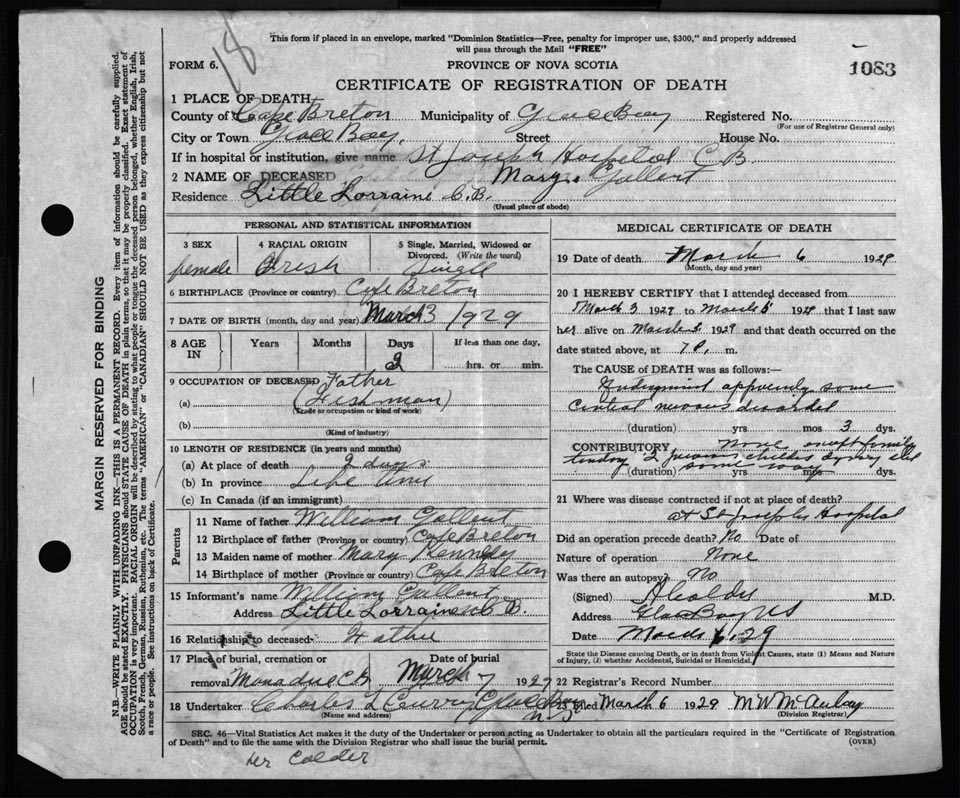 18
This form if placed in an envelope, marked "Dominion Statistics—Free, penalty for improper use, $300," and properly addressed
will pass through the Mail "FREE"
FORM 6.
PROVINCE OF NOVA SCOTIA
1083
CERTIFICATE OF REGISTRATION OF DEATH
MARGIN RESERVED FOR BINDING
N.B.—WRITE PLAINLY WITH UNFADING INK—THIS IS A PERMANENT RECORD. Every item of information should be carefully supplied.
AGE should be stated EXACTLY. PHYSICIANS should STATE CAUSE OF DEATH in plain terms, so that it may be properly classified. Exact statement of
OCCUPATION is very important. RACIAL ORIGIN will be described by stating to what people or tongue the deceased person belonged, whether English, Irish,
Scotch, French, German, Russian, Ruthenian, etc. The terms "AMERICAN" or "CANADIAN" SHOULD NOT BE USED as they express citizenship but not
a race or people. See instructions on back of Certificate.
1 PLACE OF DEATH
County of Cape Breton Municipality of Glace Bay Registered No.
(For use of Registrar General only)
City or Town Glace Bay, Street House No.
If in hospital or institution, give name St Joseph Hospital C B
2 NAME OF DECEASED Mary Gallent
Residence Little Lorraine C.B.
(Usual place of abode)
PERSONAL AND STATISTICAL INFORMATION
3 SEX 4 RACIAL ORIGIN 5 Single, Married, Widowed or
Divorced. (Write the word)
female Irish Single
6 BIRTHPLACE (Province or country) Cape Breton
7 DATE OF BIRTH (month, day and year) March 3 1929
8 AGE IN Years Months Days If less than one day,
2 hrs. or min.
9 OCCUPATION OF DECEASED Father
(a) (Fishman)
(Trade or occupation or kind of work)
(b)
(Kind of industry)
10 LENGTH OF RESIDENCE (in years and months)
(a) At place of death 2 days
(b) In province Life time
(c) In Canada (if an immigrant)
Parents
11 Name of father William Gallent
12 Birthplace of father (Province or country) Cape Breton
13 Maiden name of mother Mary Kennedy
14 Birthplace of mother (Province or country) Cape Breton
15 Informant's name William Gallent
Address Little Lorraine C B.
16 Relationship to deceased Father
17 Place of burial, cremation or Date of burial
removal Manadue C.B March 7 1929
18 Undertaker Charles L Curry Glace Bay
N.S
(Name and address)
MEDICAL CERTIFICATE OF DEATH
19 Date of death March 6 1929
(Month, day and year)
20 I HEREBY CERTIFY that I attended deceased from
March 3 1929 to March 6 1929 that I last saw
her alive on March 5 1929 and that death occurred on the
date stated above, at 7 P. m.
The CAUSE of DEATH was as follows:—
Undetermined apparently some
central nervous disorder
(duration) yrs mos 3 dys.
CONTRIBUTORY None except family
tendency 2 previous children dying
(duration) some way yrs mos dys.
21 Where was disease contracted if not at place of death?
at St Josephs Hospital
Did an operation precede death? No Date of
Nature of operation None
Was there an autopsy? No
(Signed) H Calder M.D.
Address Glace Bay NS
Date March 6, 29
State the Disease causing Death, or in death from Violent Causes, state (1) Means and Nature
of Injury, (2) whether Accidental, Suicidal or Homicidal.
22 Registrar's Record Number
Filed March 6 1929 M W McAulay
(Division Registrar)
SEC. 46—Vital Statistics Act makes it the duty of the Undertaker or person acting as Undertaker to obtain all the particulars required in the "Certificate of Registration
of Death" and to file the same with the Division Registrar who shall issue the burial permit.
(OVER)
Calder